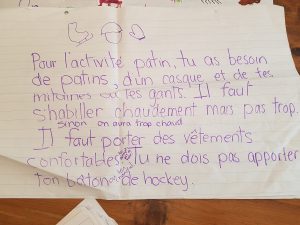 Pour l'activité patin, tu as besoin
de patins, d'un casque et de tes
mitaines ou tes gants. Il faut
s'habiller chaudement mais pas trop.
sinon on aura trop chaud
Il faut porter des vêtements
confortables. Tu ne dois pas apporter
ton bâton de hockey.